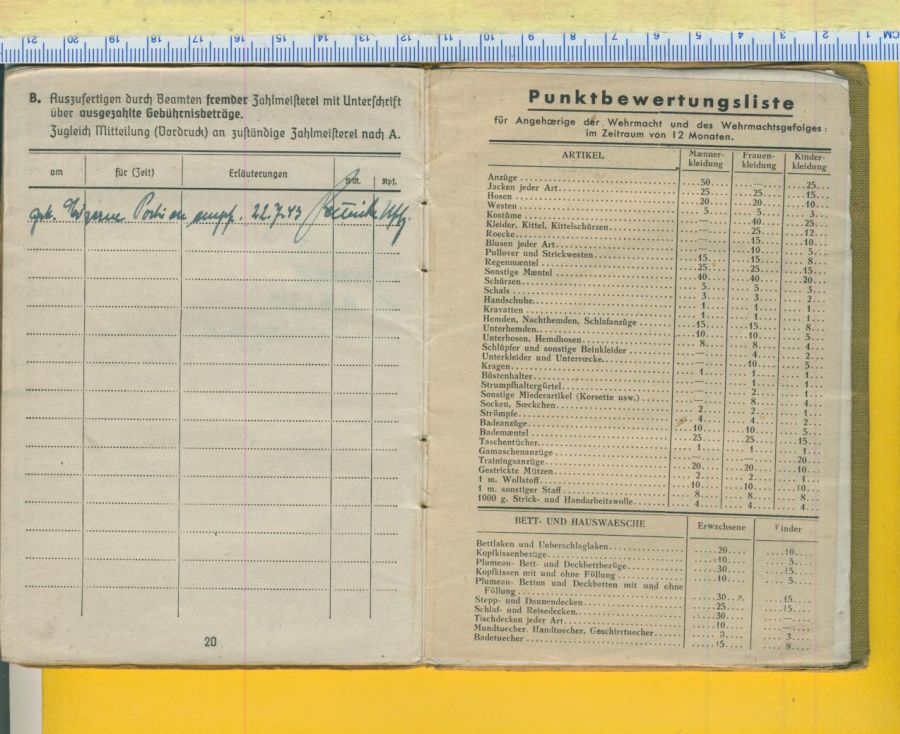 21 20 19 18 17 16 15 14 13 12 11 10 9 8 7 6 5 4 3 2 1 CM
B. Auszufertigen durch Beamten fremder Zahlmeisterei mit Unterschrift
über ausgezahlte Gebührnisbeträge.
Zugleich Mitteilung (Vordruck) an zuständige Zahlmeisterei nach A.
am für (Zeit) Erläuterungen RM. Rpf.
empf. 22.7.43
20
Punktbewertungsliste
für Angehœrige der Wehrmacht und des Wehrmachtsgefolges:
im Zeitraum von 12 Monaten.
ARTIKEL Mænner-kleidung Frauen-kleidung Kinder-kleidung
Anzüge 50 — 25
Jacken jeder Art 25 25 15
Hosen 20 20 10
Westen 5 5 3
Kostüme — 40 25
Kleider, Kittel, Kittelschürzen — 25 12
Roecke — 15 10
Blusen jeder Art — 10 5
Pullover und Strickwesten 15 15 8
Regenmæntel 25 25 15
Sonstige Mæntel 40 40 20
Schürzen 5 5 3
Schals 3 3 2
Handschuhe 1 1 1
Kravatten 1 1 1
Hemden, Nachthemden, Schlafanzüge 15 15 8
Unterhemden 10 10 5
Unterhosen, Hemdhosen 8 8 4
Schlüpfer und sonstige Beinkleider — 4 2
Unterkleider und Unterrœcke — 10 5
Kragen 1 1 1
Büstenhalter — 1 1
Strumpfhaltergürtel — 2 1
Sonstige Miederartikel (Korsette usw.) — 8 4
Socken, Sœckchen 2 2 1
Strümpfe 4 4 2
Badeanzüge 10 10 5
Bademæntel 25 25 15
Taschentücher 1 1 1
Gamaschenanzüge — — 20
Trainingsanzüge 20 20 10
Gestrickte Mützen 2 2 1
1 m. Wollstoff 10 10 10
1 m. sonstiger Staff 8 8 8
1000 g. Strick- und Handarbeitswolle 4 4 4
BETT- UND HAUSWAESCHE Erwachsene Kinder
Bettlaken und Ueberschlaglaken 20 10
Kopfkissenbezüge 10 5
Plumeau- Bett- und Deckbettbezüge 30 15
Kopfkissen mit und ohne Füllung 10 5
Plumeau- Betten und Deckbetten mit und ohne
Füllung 30 15
Stepp- und Daunendecken 25 15
Schlaf- und Reisedecken 30 —
Tischdecken jeder Art 10 —
Mundtuecher, Handtuecher, Geschirrtuecher 3 3
Badetuecher 15 8